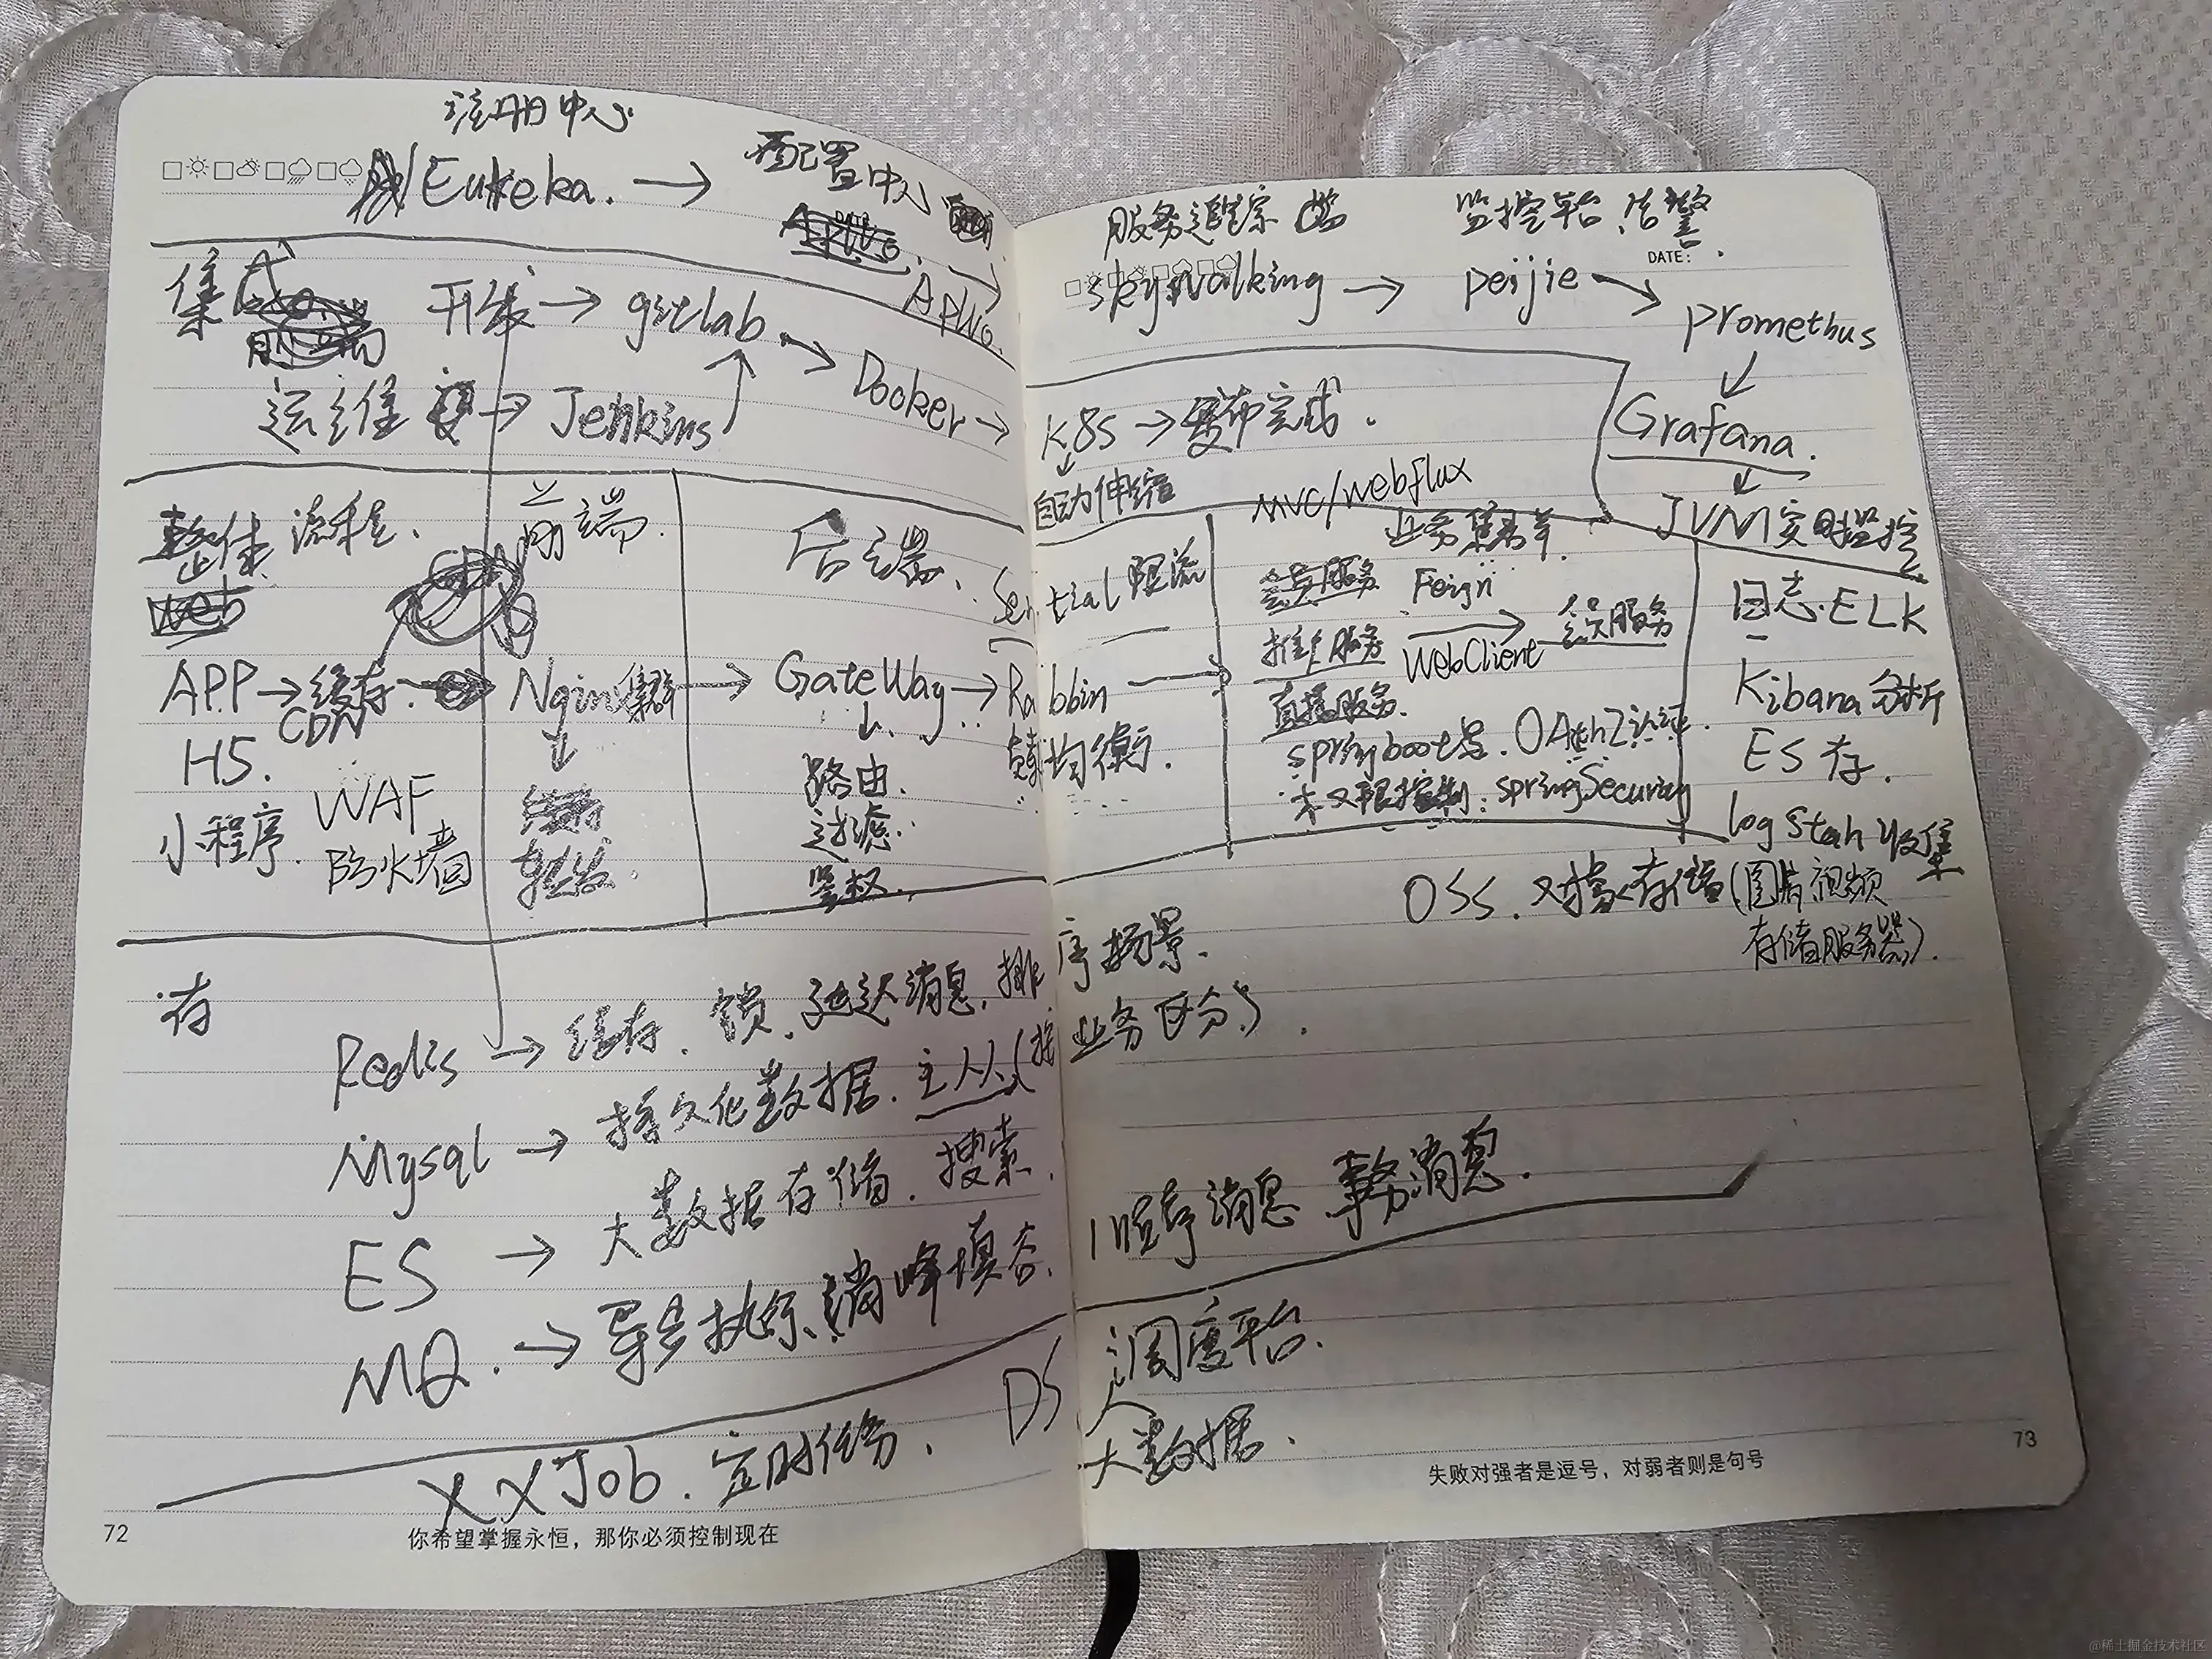 注册中心
Eureka. → 配置中心
APllo.
集成
开发 → gitlab → Docker →
运维 → Jenkins
整体流程. 前端. 后端.
CDN
APP → 缓存. → Nginx集群 → GateWay →
CDN
H5.
小程序.
WAF
防火墙
转发
路由.
过滤.
鉴权.
存
Redis → 缓存. 锁. 延迟消息. 排序场景.
Mysql → 持久化数据. 主从(按业务区分).
ES → 大数据存储. 搜索.
MQ. → 异步执行、消峰填谷. 顺序消息 事务消息.
XXJob. 定时任务. DS 调度平台.
大数据.
72
你希望掌握永恒，那你必须控制现在
服务追踪 监控平台.告警
DATE: .
skywalking → peijie → promethus
Grafana.
JVM实时监控
K8s → 发布完成.
自动伸缩
MVC/webflux
业务集群.
Sential 限流
Rabbin
负载均衡.
会员服务 Feign
推广服务 WebClient → 会员服务
直播服务.
springboot OAuth2认证.
权限控制: springSecuriay
日志.ELK
Kibana分析
ES存.
log Stah 收集
OSS. 对象存储(图片视频
存储服务器).
73
失败对强者是逗号，对弱者则是句号
@稀土掘金技术社区